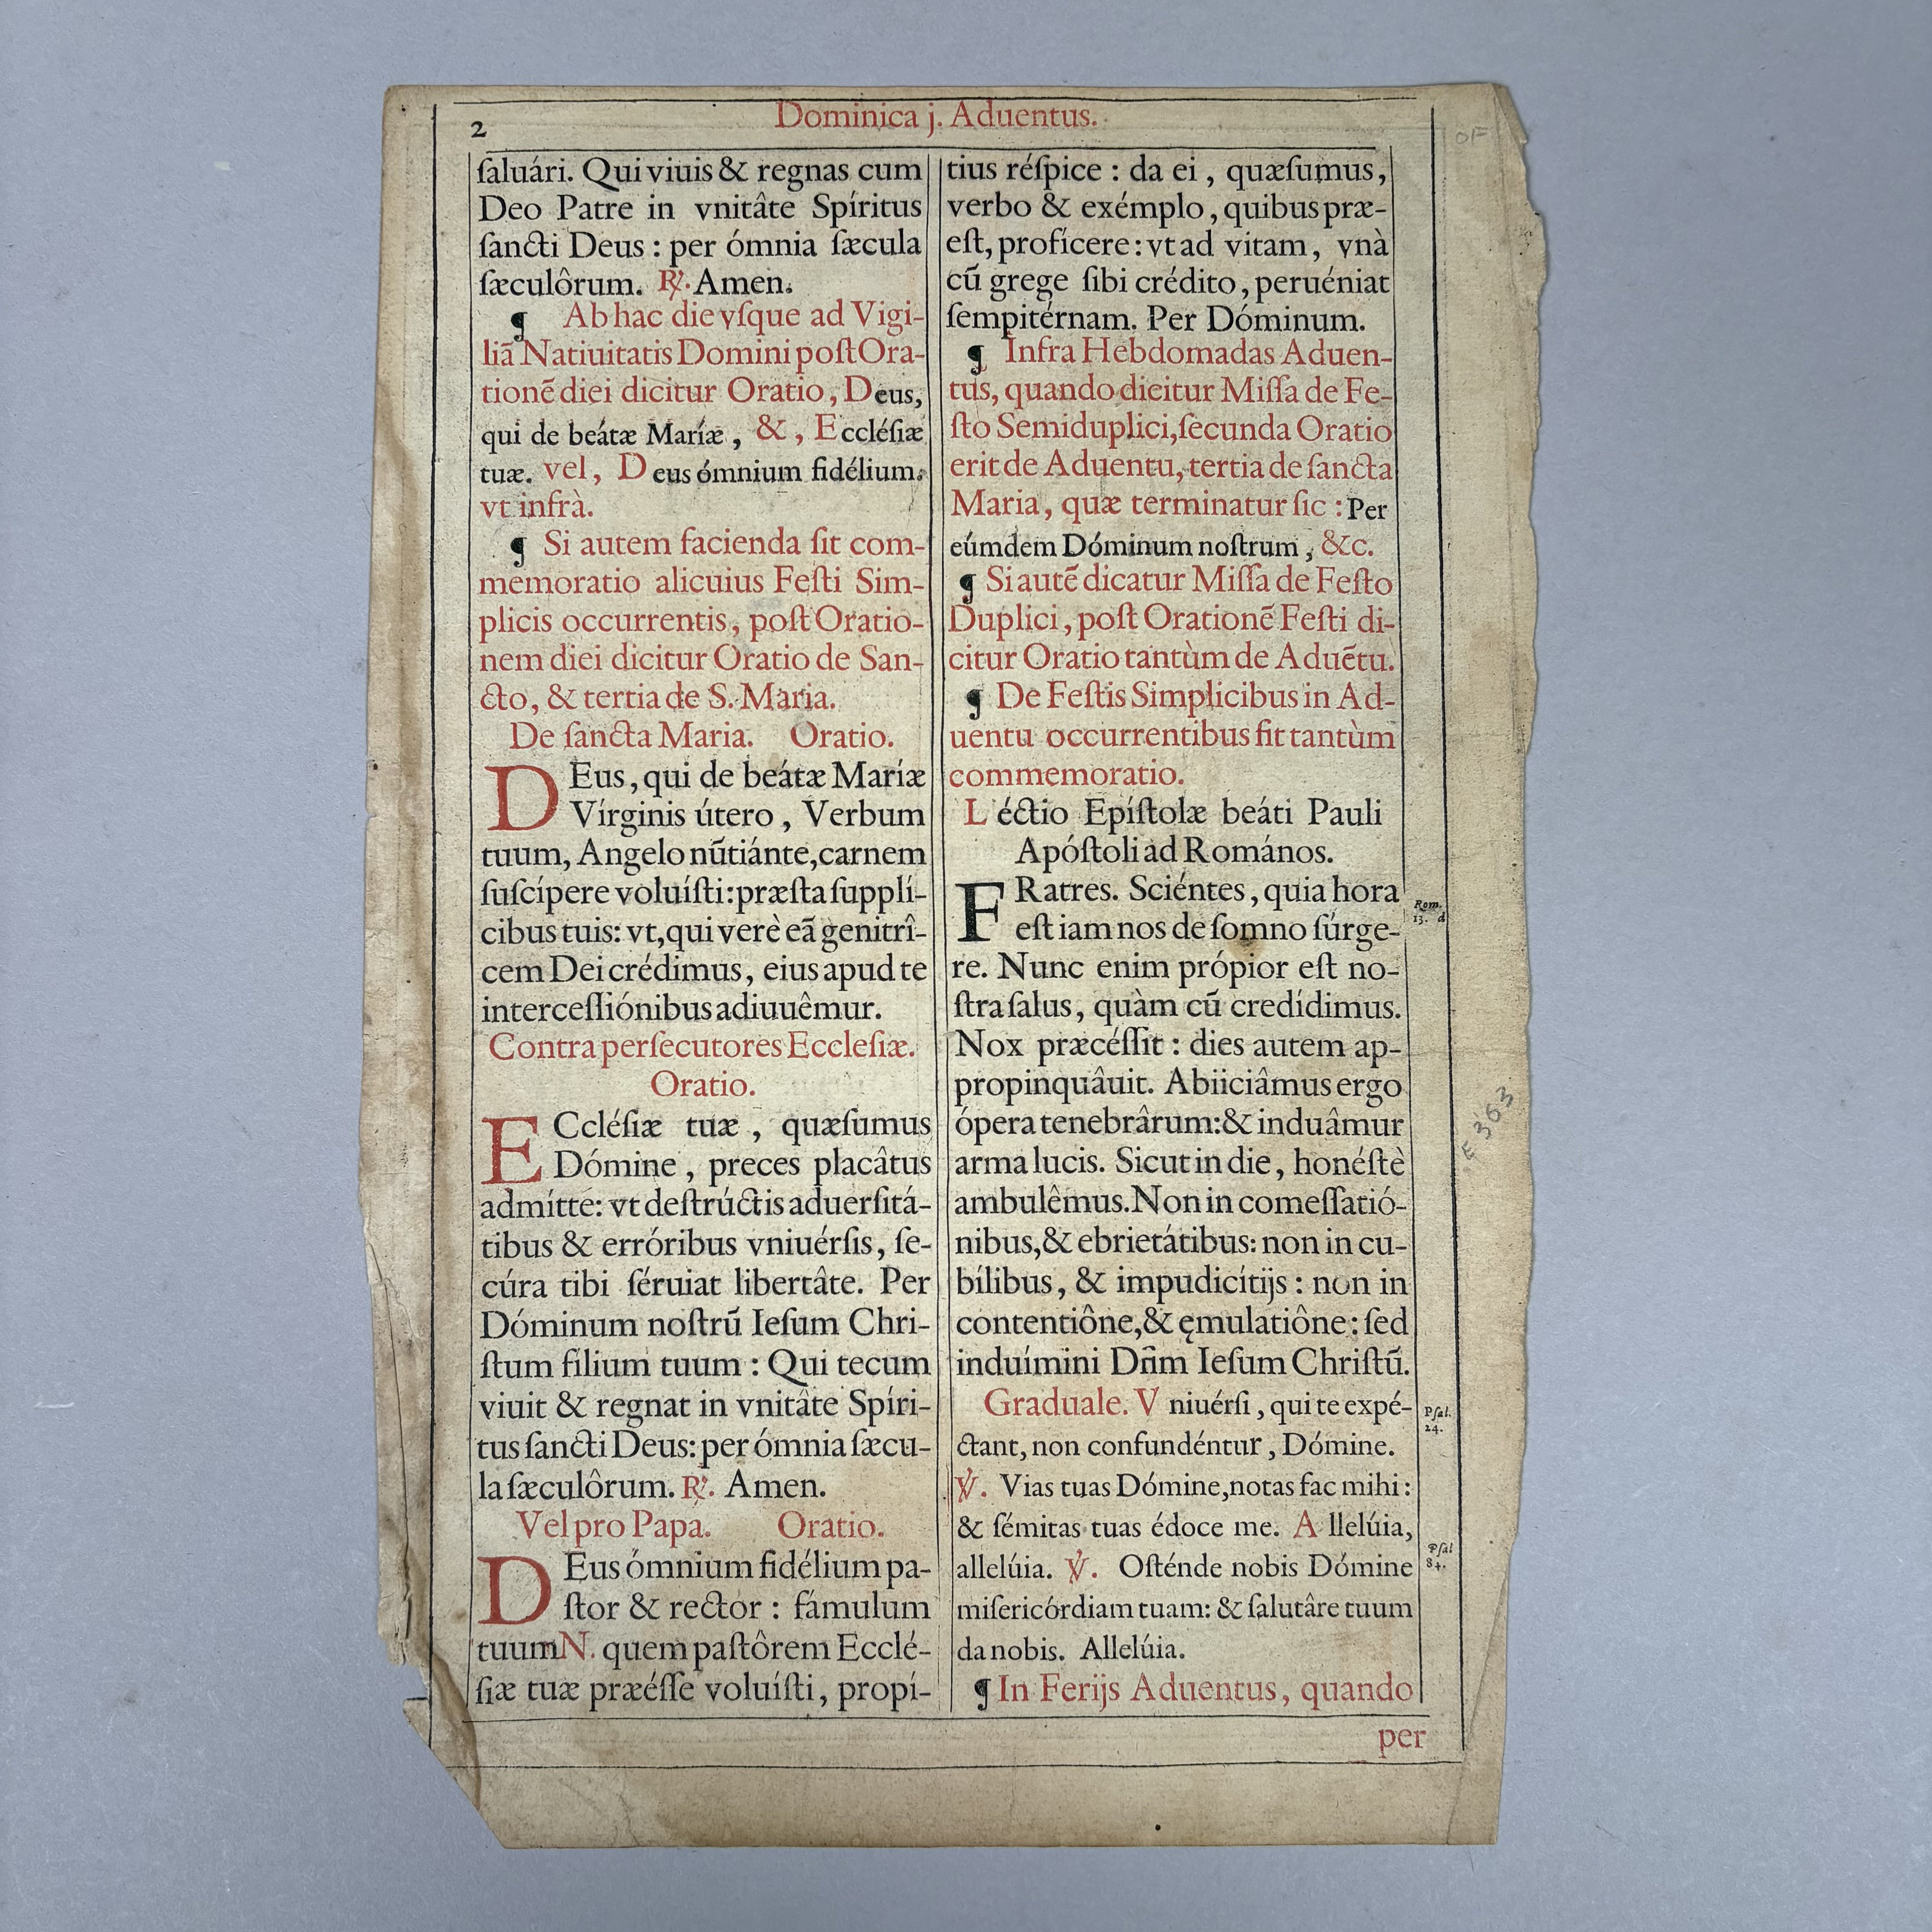 2
Dominica j. Aduentus.
ſaluári. Qui viuis & regnas cum
Deo Patre in vnitâte Spíritus
ſancti Deus : per ómnia ſæcula
ſæculôrum. ℟. Amen.
¶ Ab hac die vſque ad Vigi-
liã Natiuitatis Domini poſt Ora-
tionẽ diei dicitur Oratio, Deus,
qui de beátæ Maríæ, &, Eccléſiæ
tuæ. vel, Deus ómnium fidélium.
vt infrà.
¶ Si autem facienda ſit com-
memoratio alicuius Feſti Sim-
plicis occurrentis, poſt Oratio-
nem diei dicitur Oratio de San-
cto, & tertia de S. Maria.
De ſancta Maria. Oratio.
DEus, qui de beátæ Maríæ
Vírginis útero, Verbum
tuum, Angelo nũtiánte, carnem
ſuſcípere voluíſti: præſta ſupplí-
cibus tuis: vt, qui verè eã genitrî-
cem Dei crédimus, eius apud te
interceſſiónibus adiuuêmur.
Contra perſecutores Eccleſiæ.
Oratio.
ECcléſiæ tuæ, quæſumus
Dómine, preces placâtus
admítte: vt deſtrúctis aduerſitá-
tibus & erróribus vniuérſis, ſe-
cúra tibi ſéruiat libertâte. Per
Dóminum noſtrũ Ieſum Chri-
ſtum fílium tuum : Qui tecum
viuit & regnat in vnitâte Spíri-
tus ſancti Deus: per ómnia ſæcu-
la ſæculôrum. ℟. Amen.
Vel pro Papa. Oratio.
DEus ómnium fidélium pa-
ſtor & rector : fámulum
tuum N. quem paſtôrem Ecclé-
ſiæ tuæ præéſſe voluíſti, propí-
tius réſpice : da ei, quæſumus,
verbo & exémplo, quibus præ-
eſt, profícere: vt ad vitam, vnà
cũ grege ſibi crédito, peruéniat
ſempitérnam. Per Dóminum.
¶ Infra Hebdomadas Aduen-
tus, quando dicitur Miſſa de Fe-
ſto Semiduplici, ſecunda Oratio
erit de Aduentu, tertia de ſancta
Maria, quæ terminatur ſic : Per
eúmdem Dóminum noſtrum, &c.
¶ Si autẽ dicatur Miſſa de Feſto
Duplici, poſt Orationẽ Feſti di-
citur Oratio tantùm de Aduẽtu.
¶ De Feſtis Simplicibus in Ad-
uentu occurrentibus fit tantùm
commemoratio.
Léctio Epíſtolæ beáti Pauli
Apóſtoli ad Romános.
FRatres. Sciéntes, quia hora
eſt iam nos de ſomno ſúrge-
re. Nunc enim própior eſt no-
ſtra ſalus, quàm cũ credídimus.
Nox præcéſſit : dies autem ap-
propinquâuit. Abiiciâmus ergo
ópera tenebrârum: & induâmur
arma lucis. Sicut in die, honéſtè
ambulêmus. Non in comeſſatió-
nibus, & ebrietátibus: non in cu-
bílibus, & impudicítijs : non in
contentiône, & ęmulatiône: ſed
induímini Dñm Ieſum Chriſtũ.
Graduale. Vniuérſi, qui te expé-
ctant, non confundéntur, Dómine.
℣. Vias tuas Dómine, notas fac mihi:
& ſémitas tuas édoce me. Allelúia,
allelúia. ℣. Oſténde nobis Dómine
miſericórdiam tuam: & ſalutâre tuum
da nobis. Allelúia.
¶ In Ferijs Aduentus, quando
per
Rom.
13. d
Pſal.
24.
Pſal
84.
OF
E 363